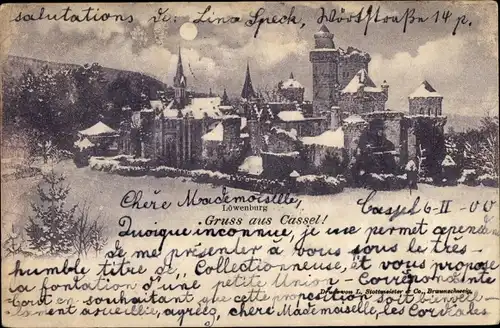 salutations de: Lina Speck, Wörthstraße 14 p.
Löwenburg
Gruss aus Cassel!
Chère Mademoiselle,
Cassel 6-II-00
Quoique inconnue, je me permet
de me présenter à vous sous le très-
humble titre de „Collectionneuse, et vous propose
la fontation d'une petite Union-Correspondante
tout en souhaitant que cette proposition soit
agréez, chère Mademoiselle, les
Druck von L. Stottmeister & Co., Braunschweig.